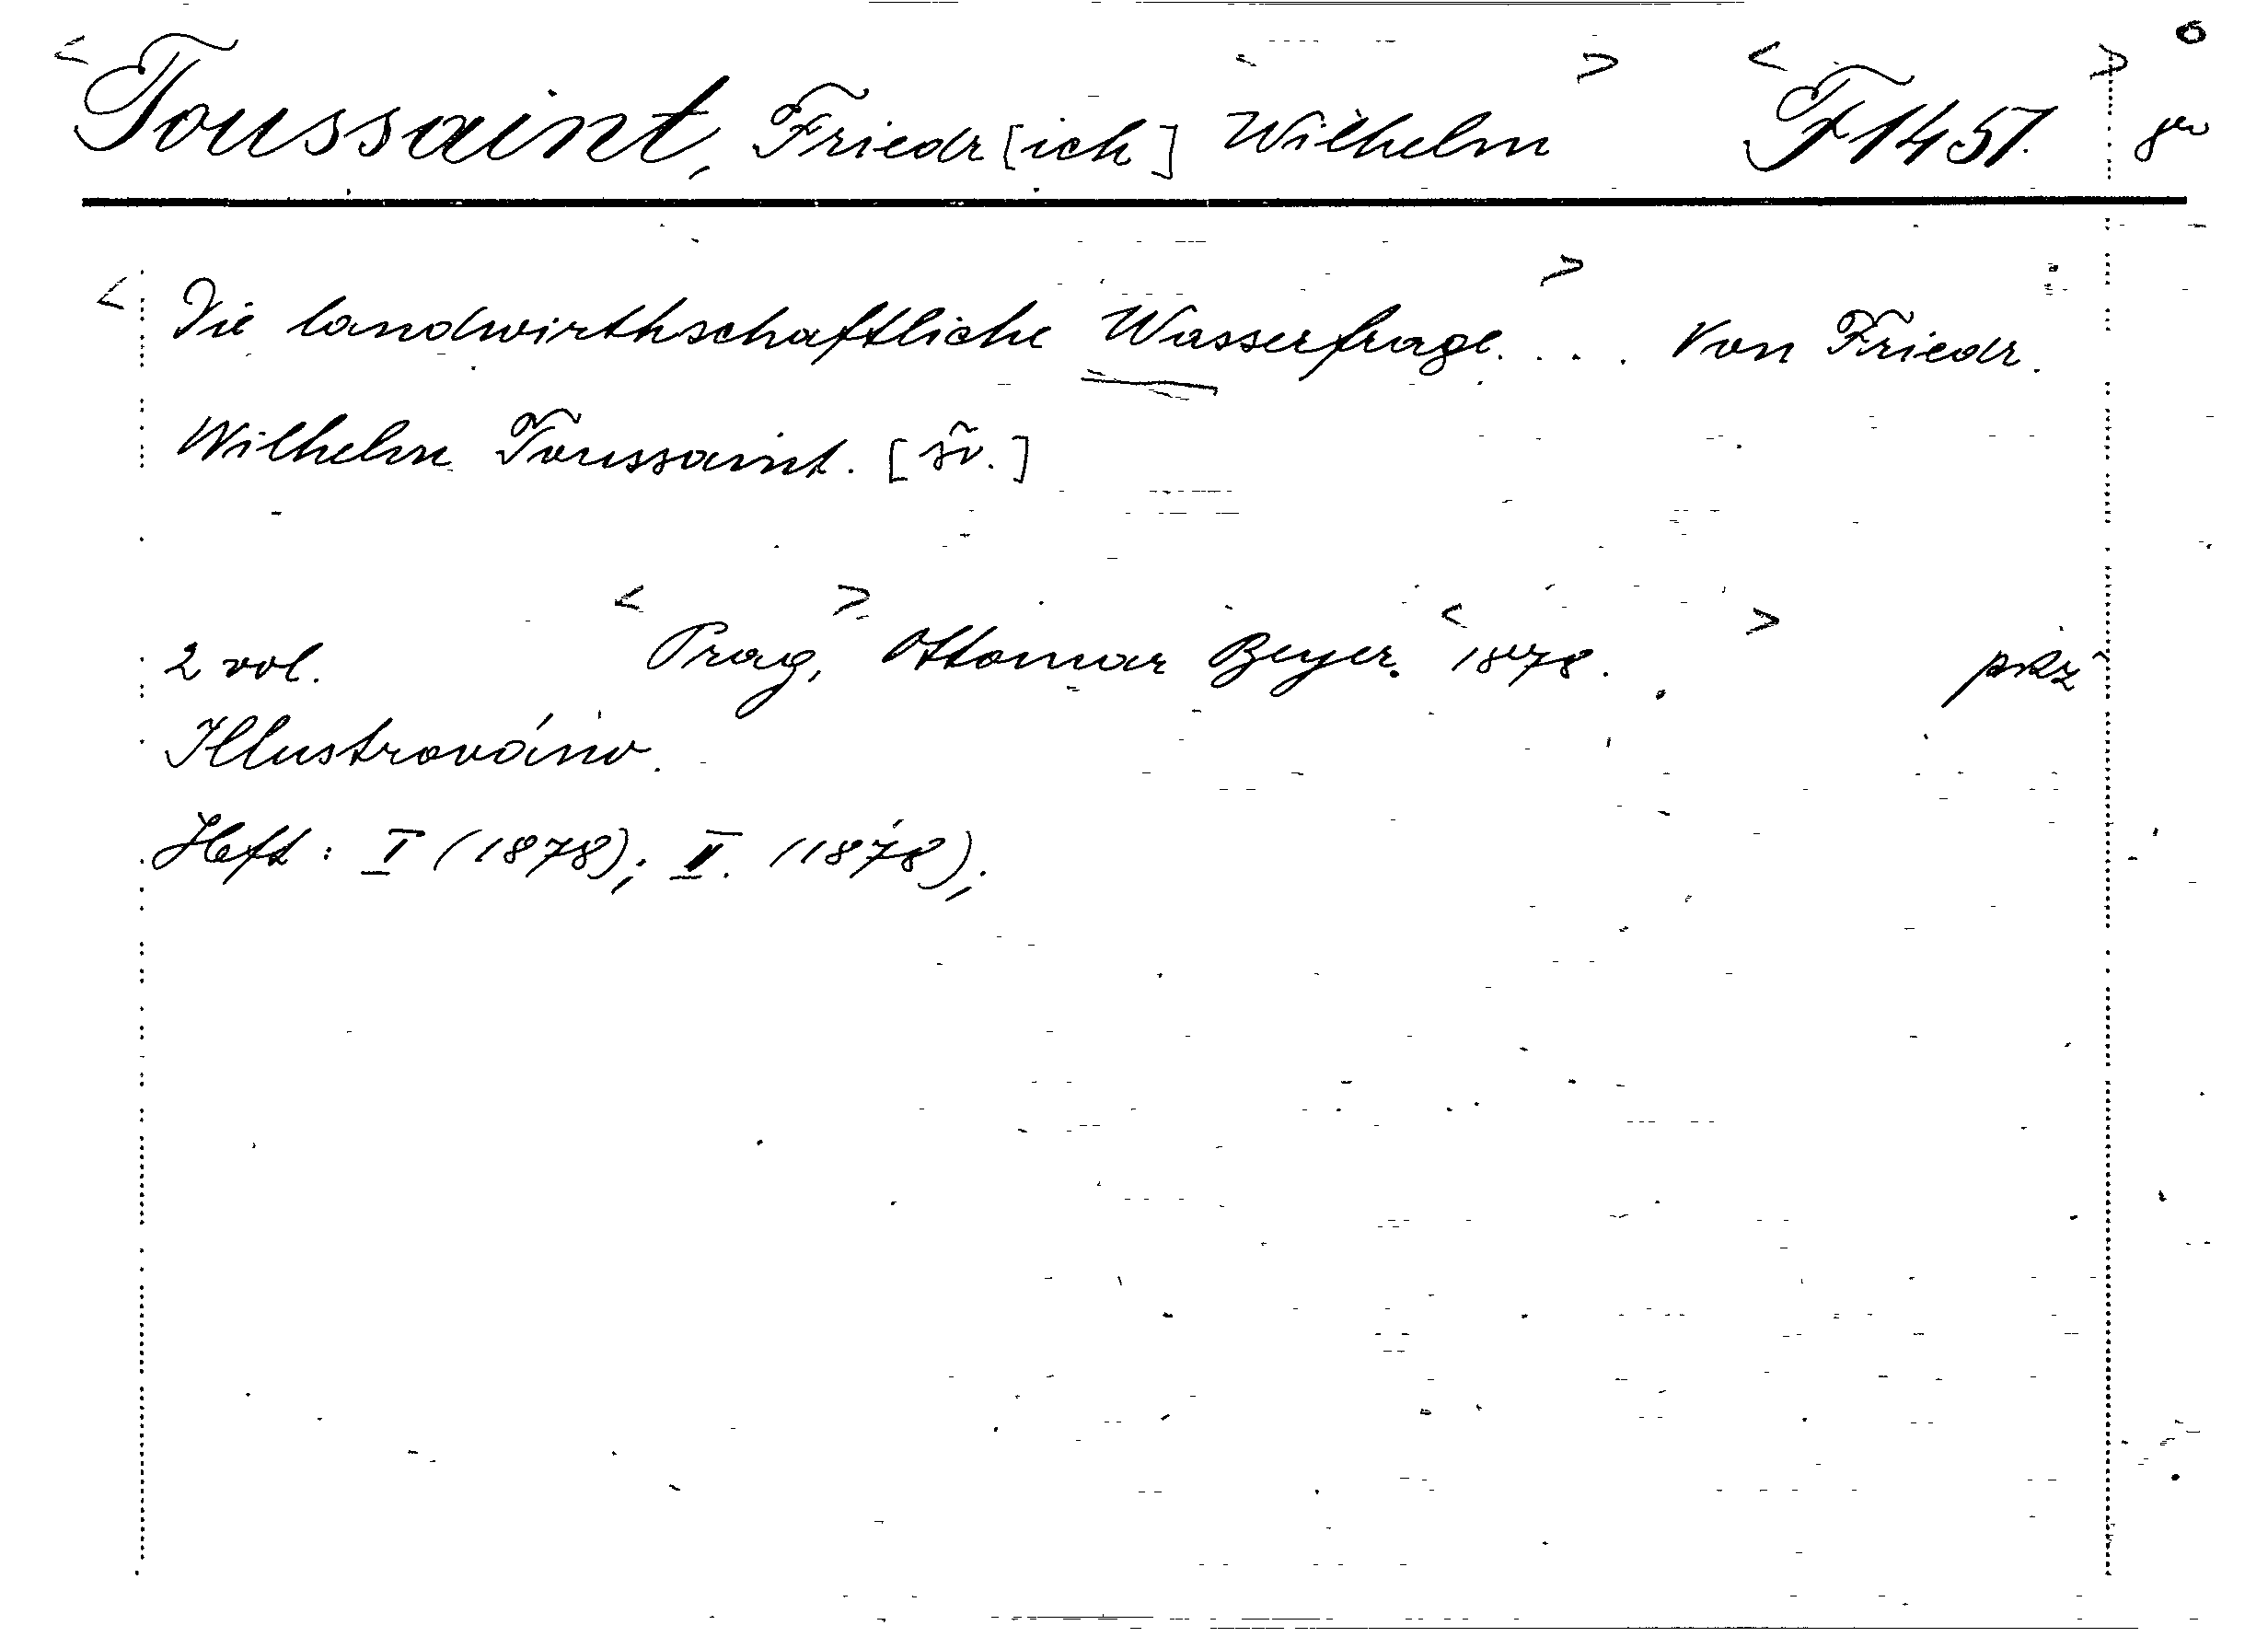 <Toussaint, Friedr[ich] <Wilhelm> <F 1451.>
<Die landwirthschaftliche Wasserfrage> . . . Von Friedr.
Wilhelm Toussaint. [sv.]
2 vol. <Prag,> Ottomar Beyer. <1878.>
Illustrováno.
Heft: I (1878); II. (1878);